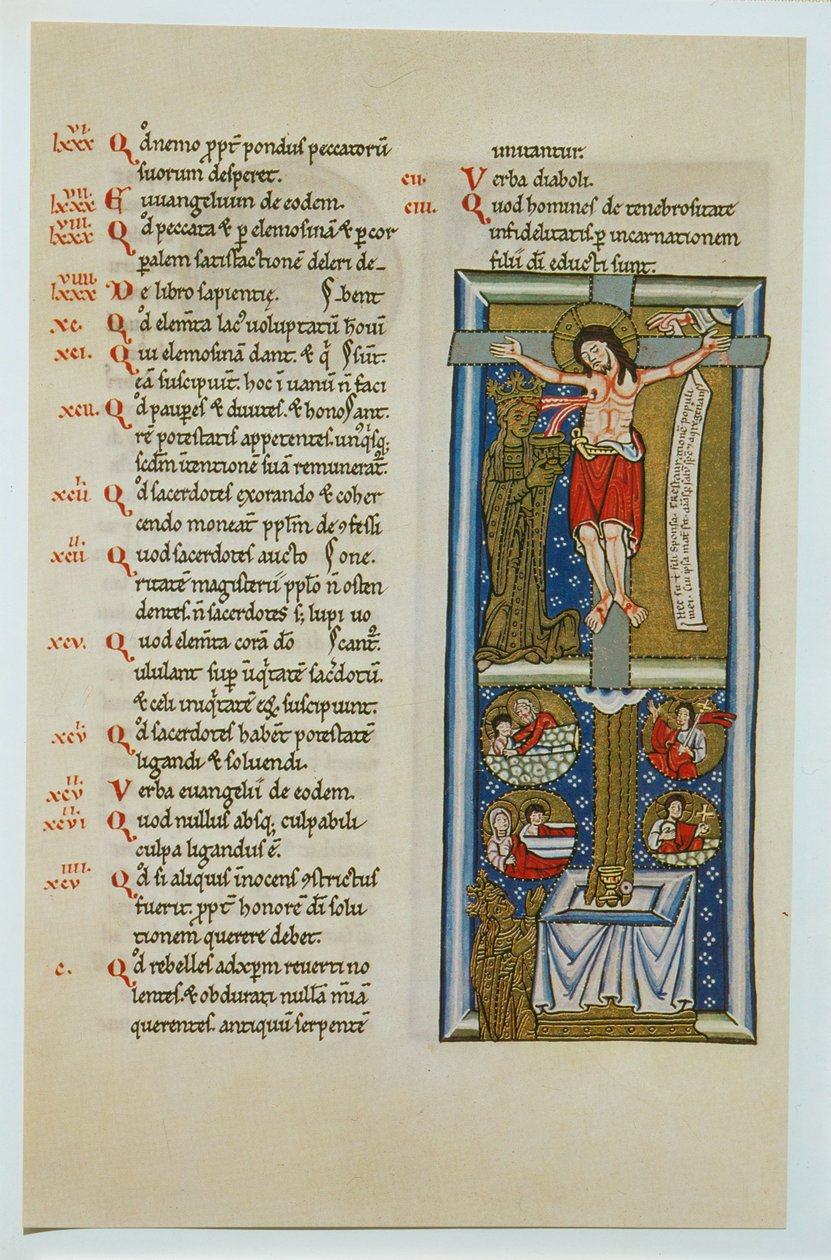 lxxxvi. Qd nemo ꝓpt̄ pondus peccatorū
suorum desperet.
lxxxvii. Euuangelium de eodem.
lxxxviii. Qd peccata & ꝑ elemosinā & ꝑ cor
ꝑalem satisfactionē deleri de_
lxxxviiii. De libro sapientię. bent
xc. Qd elem̄ta
xci. Qui elemosinā dant. & sunt.
eā suscipiunt. hoc ī uanū n̄ faci
xcii. Qd pauꝑes & diuites. & hono ant.
rē potestatis appetentes.
scdm̄ intentionē suā remunerat.
xciii. Qd sacerdotes exorando & coher
cendo moneat pplm̄ de ꝯfessi
xciiii. Quod sacerdotes aucto one.
ritatē magisterii pplo n̄ osten
dentes. n̄ sacerdotes s; lupi uo
xcv. Quod elem̄ta corā dō cant.
ululant suꝑ
& celi iniq̇tatē suscipiunt.
xcvi. Qd sacerdotes habēt potestatē
ligandi & soluendi.
xcvii. Verba euangelii de eodem.
Quod nullus absq; culpabili
culpa ligandus ē.
xcviiii. Qd si aliquis īnocens ꝯstrictus
fuerit. ꝓpt̄ honorē dī solu
tionem querere debet.
c. Qd rebelles ad xp̄m reuerti no
lentes. & obdurati nullā mīā
querentes. antiquū serpentē
imitantur.
cii. Verba diaboli.
ciii. Quod homines de tenebrositate
infidelitatis ꝑ incarnationem
filii dī educti sunt.
Hec sponsa populi
mei. ipsa